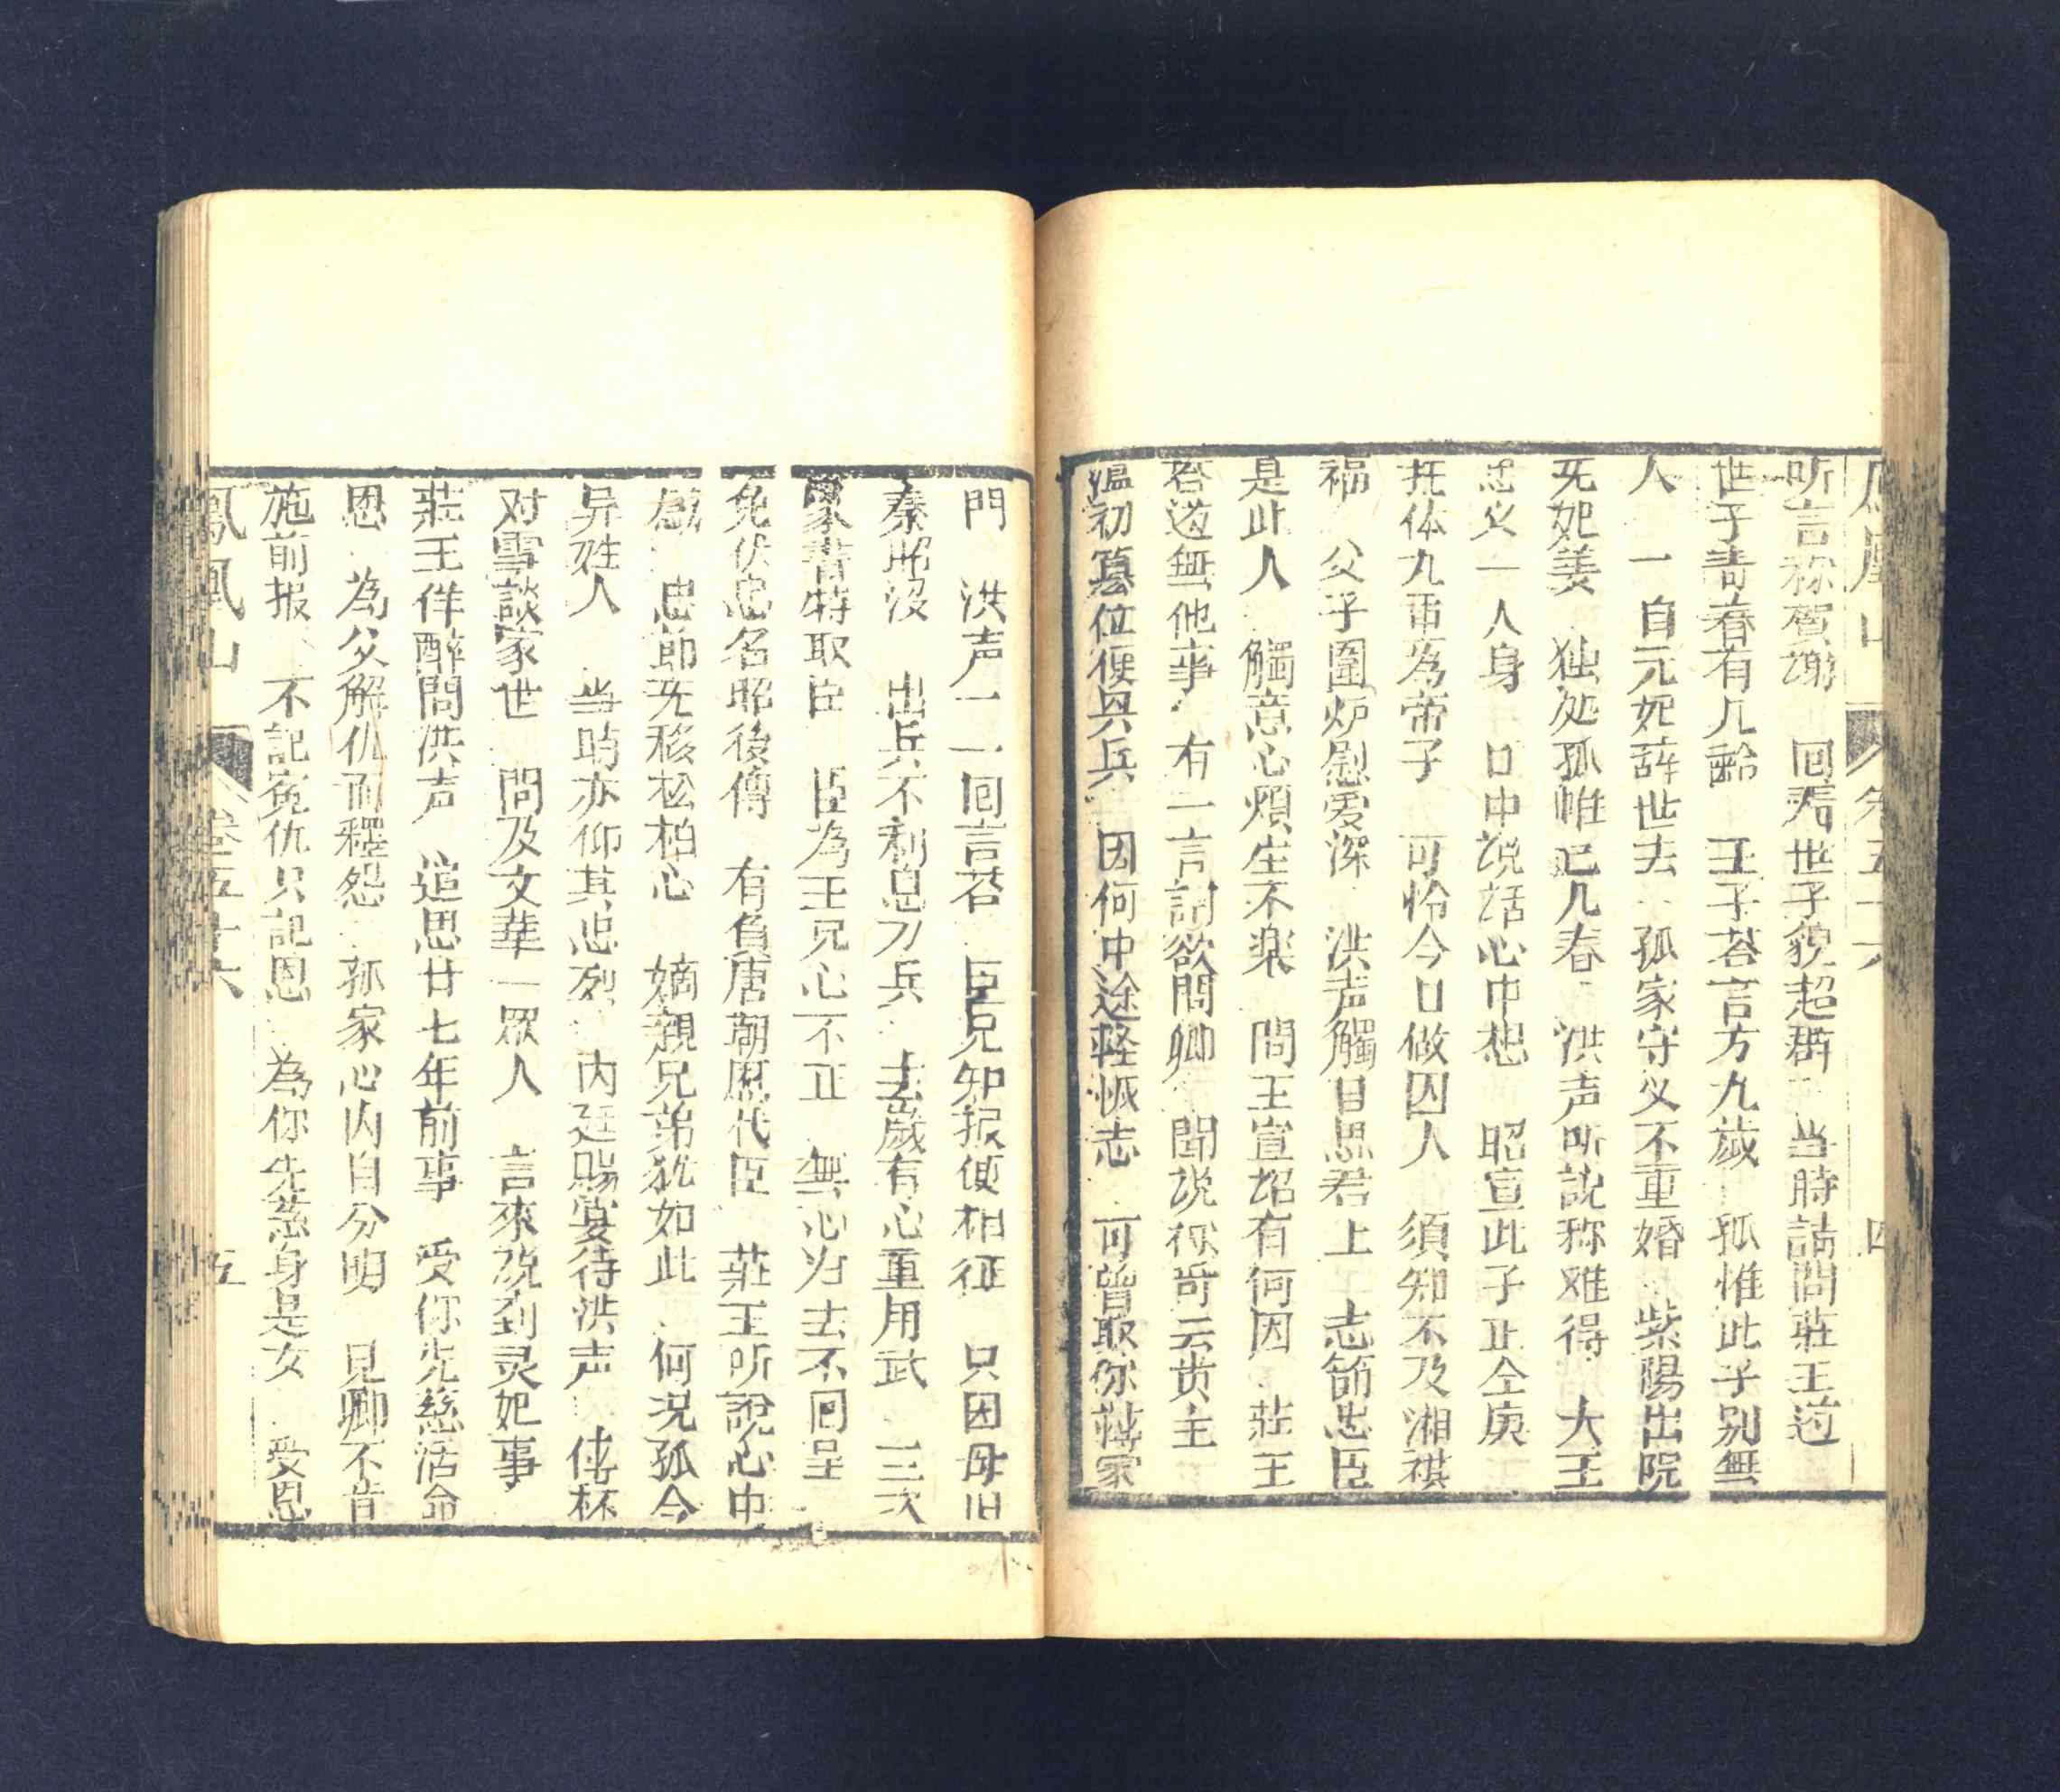 听言称賀謝 回看世子貌超群 当時請問莊王过
世子青春有几齡 王子荅言方九歲 孤惟此子別無
人 一自元妃辞世去 孤家守义不重婚 紫陽出院
无妃姜 独処孤帷已几春 洪声听說称难得 大王
忠义一人身 口中說話心中想 昭宣此子止仝庚
托体九重為帝子 可怜今日做囚人 須知不及湘祺
福 父子圍炉慰爱深 洪声觸目思君上 志節忠臣
是此人 觸意心煩生不楽 問王宣招有何因 莊王
荅道無他事 有一言詞欲問卿 聞說祢哥云贵主
温初篡位便兵兵 因何中途軽恢志 可曽取你蒋家
門 洪声一一回言荅 臣兄知报便相征 只因母旧
秦邸没 出兵不利息刀兵 去歲有心重用武 三次
家書特取臣 臣為王兄心不正 無心为去不回呈
免伏忠名昭後傳 有負唐朝歴代臣 莊王听說心中
感 忠節无移松柏心 嫡親兄弟犹如此 何况孤今
异姓人 当時亦仰其忠烈 内廷賜宴待洪声 传杯
对雪談家世 問及文華一眾人 言來說到灵妃事
莊王佯醉問洪声 追思廿七年前事 受你先慈活命
恩 為父解仇而釋怨 孤家心内自分明 見卿不肯
施前报 不記寃仇只記恩 為你先慈身是女 受恩
鳳凰山 卷五十六 五